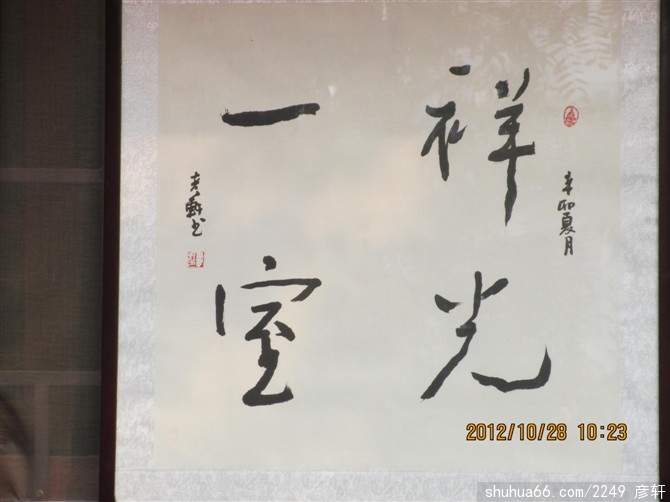 辛卯夏月
祥光
一室
书
2012/10/28 10:23
shuhua66.com/2249 彦轩